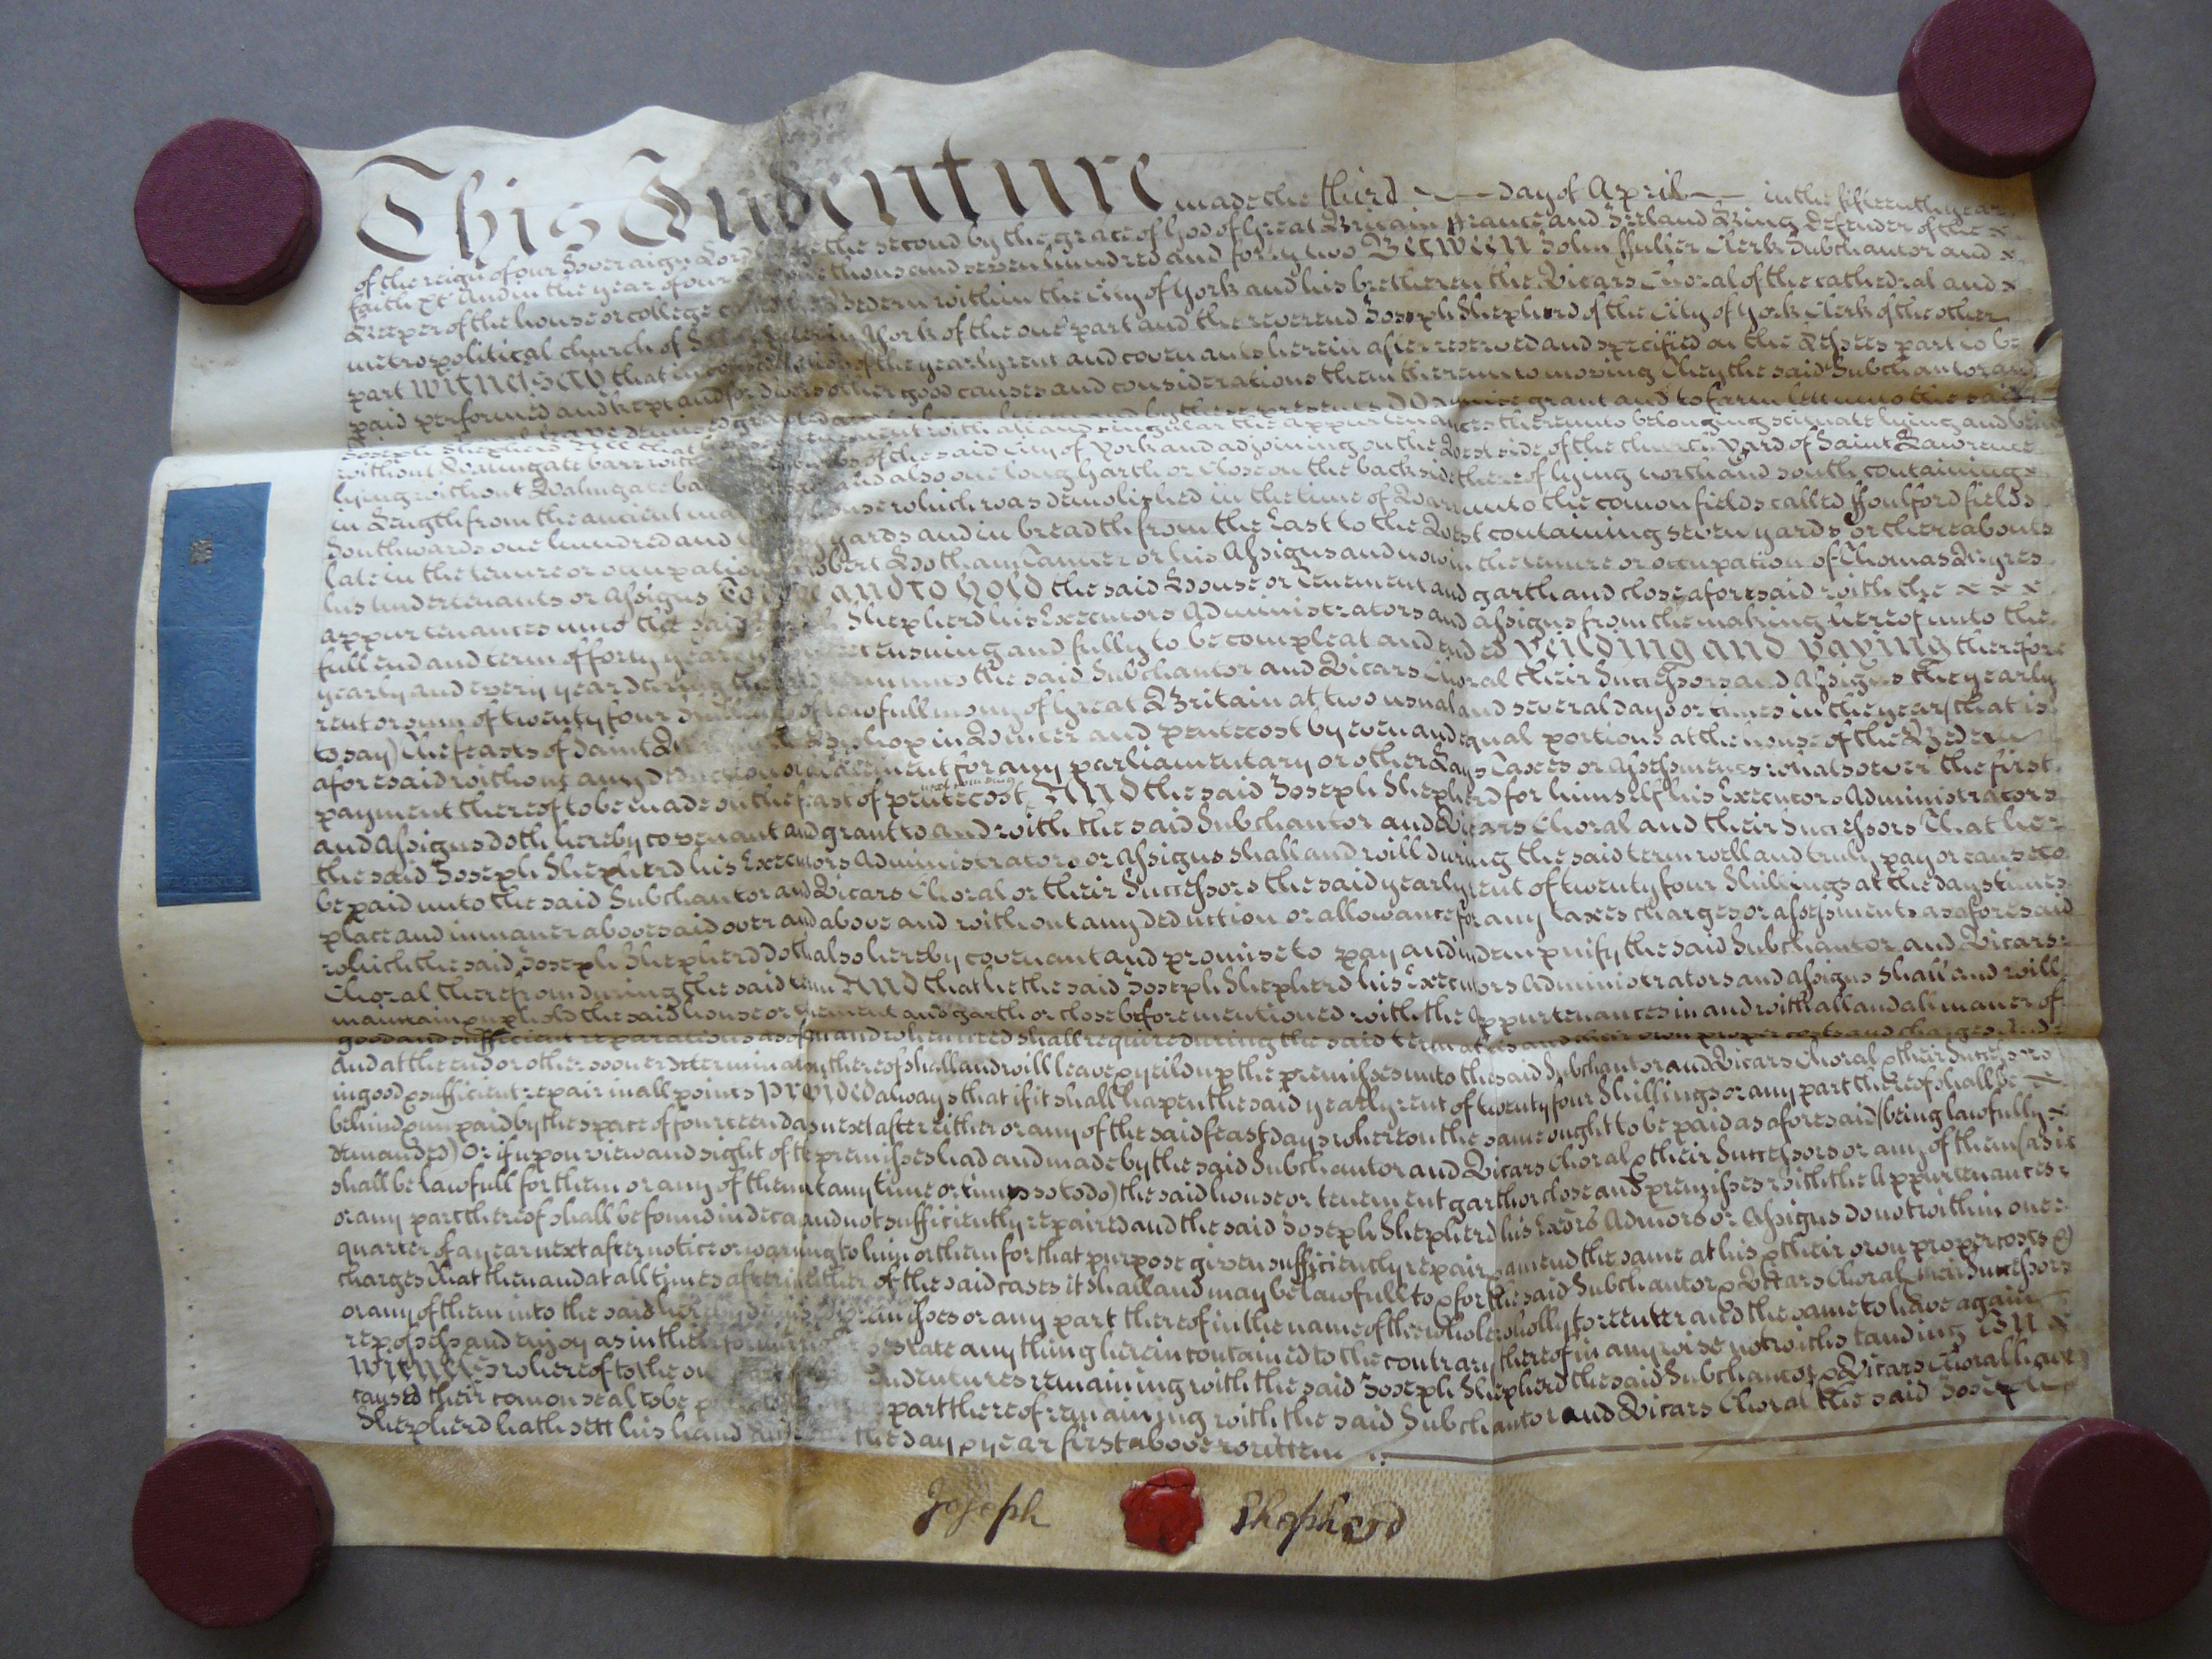 This Indenture made the third day of April in the fifteenth year
of the reign of our Soveraign Lord George the second by the grace of God of Great Britain France and Ireland King Defender of the
faith &c And in the year of our Lord one thousand seven hundred and forty two Between John Fuller Clerk Subchantor and
Keeper of the house or college called the Bedern within the City of York and his bretheren the Vicars Choral of the cathedral and
metropolitical church of Saint Peter in York of the one part and the reverend Joseph Shepherd of the City of York Clerk of the other
part Witnesseth that in consideration of the yearly rent and covenants herein after reserved and specified on the Lessees part to be
paid performed and kept and for divers other good causes and considerations them thereunto moving They the said Subchantor and
by these presents Do demise grant and to farm lett unto the said
Joseph Shepherd All that tenement with all and singular the appurtenances thereunto belonging scituate lying and being
without Walmgate barr of the said City of York and adjoining on the West side of the church yard of Saint Lawrence
lying without Walmgate bar and also one long garth or Close on the backside thereof lying north and south containing
in Length from the ancient house which was demolished in the time of Warr unto the comon fields called Foulford fields
Southwards one hundred and yards and in breadth from the East to the West containing seven yards or thereabouts
late in the tenure or occupation of Robert Wotham Tanner or his Assigns and now in the tenure or occupation of Thomas Myres
his undertenants or Assigns To have and to hold the said House or Tenement and garth and close aforesaid with the
appurtenances unto the said Joseph Shepherd his Executors Administrators and assigns from the making hereof unto the
full end and term of forty years next ensuing and fully to be compleat and ended Yeilding and paying therefore
yearly and every year during the said term unto the said Subchantor and Vicars Choral their Successors and Assigns the yearly
rent or sum of twenty four shillings of lawfull mony of Great Britain at two usual and several days or times in the year (that is
to say) the feasts of Saint Martin the Bishop in Winter and pentecost by even and equal portions at the house of the Bedern
aforesaid without any deduction or abatement for any parliamentary or other Lays Taxes or Assessments whatsoever the first
payment thereof to be made on the feast of pentecost next coming And the said Joseph Shepherd for himself his Executors Administrators
and Assigns doth hereby covenant and grant to and with the said Subchantor and Vicars Choral and their Successors That he
the said Joseph Shepherd his Executors Administrators or Assigns shall and will during the said term well and truly pay or cause to
be paid unto the said Subchantor and Vicars Choral or their Successors the said yearly rent of twenty four Shillings at the days times
place and in maner abovesaid over and above and without any deduction or allowance for any taxes charges or assessments as aforesaid
which the said Joseph Shepherd doth also hereby covenant and promise to pay and indempnify the said Subchantor and Vicars
Choral therefrom during the said term And that he the said Joseph Shepherd his Executors Administrators and assigns shall and will
maintain uphold the said house or tenement and garth or close before mentioned with the Appurtenances in and with all and all maner of
good and sufficient reparations as often and when need shall require during the said term at his and their own proper costs and charges And
and at the end or other sooner determination thereof shall and will leave & yeild up the premisses unto the said Subchantor and Vicars Choral & their Successors
in good & sufficient repair in all points Provided always that if it shall hapen the said yearly rent of twenty four Shillings or any part thereof shall be
behind & unpaid by the space of fourteen days next after either or any of the said feast days whereon the same ought to be paid as aforesaid (being lawfully
demanded) Or if upon view and sight of the premisses had and made by the said Subchantor and Vicars Choral & their Successors or any of them (as it
shall be lawfull for them or any of them at any time or times so to do) the said house or tenement garth or close and premisses with the Appurtenances
or any part thereof shall be found in decay and not sufficiently repaired and the said Joseph Shepherd his Exors Admors or Assigns do not within one
quarter of a year next after notice or warning to him or them for that purpose given sufficiently repair & amend the same at his & their own proper costs &
charges That then and at all times after in either of the said cases it shall and may be lawfull to & for the said Subchantor & Vicars Choral their Successors
or any of them into the said hereby demised premisses or any part thereof in the name of the whole wholly to reenter and the same to have again
reposess and enjoy as in their former estate any thing herein contained to the contrary thereof in any wise notwithstanding In
Witness whereof to the one Indentures remaining with the said Joseph Shepherd the said Subchantor & Vicars Choral have
caused their comon seal to be part thereof remaining with the said Subchantor and Vicars Choral the said Joseph
Shepherd hath sett his hand the day & year first above written
Joseph Shepherd
VI PENCE
VI PENCE